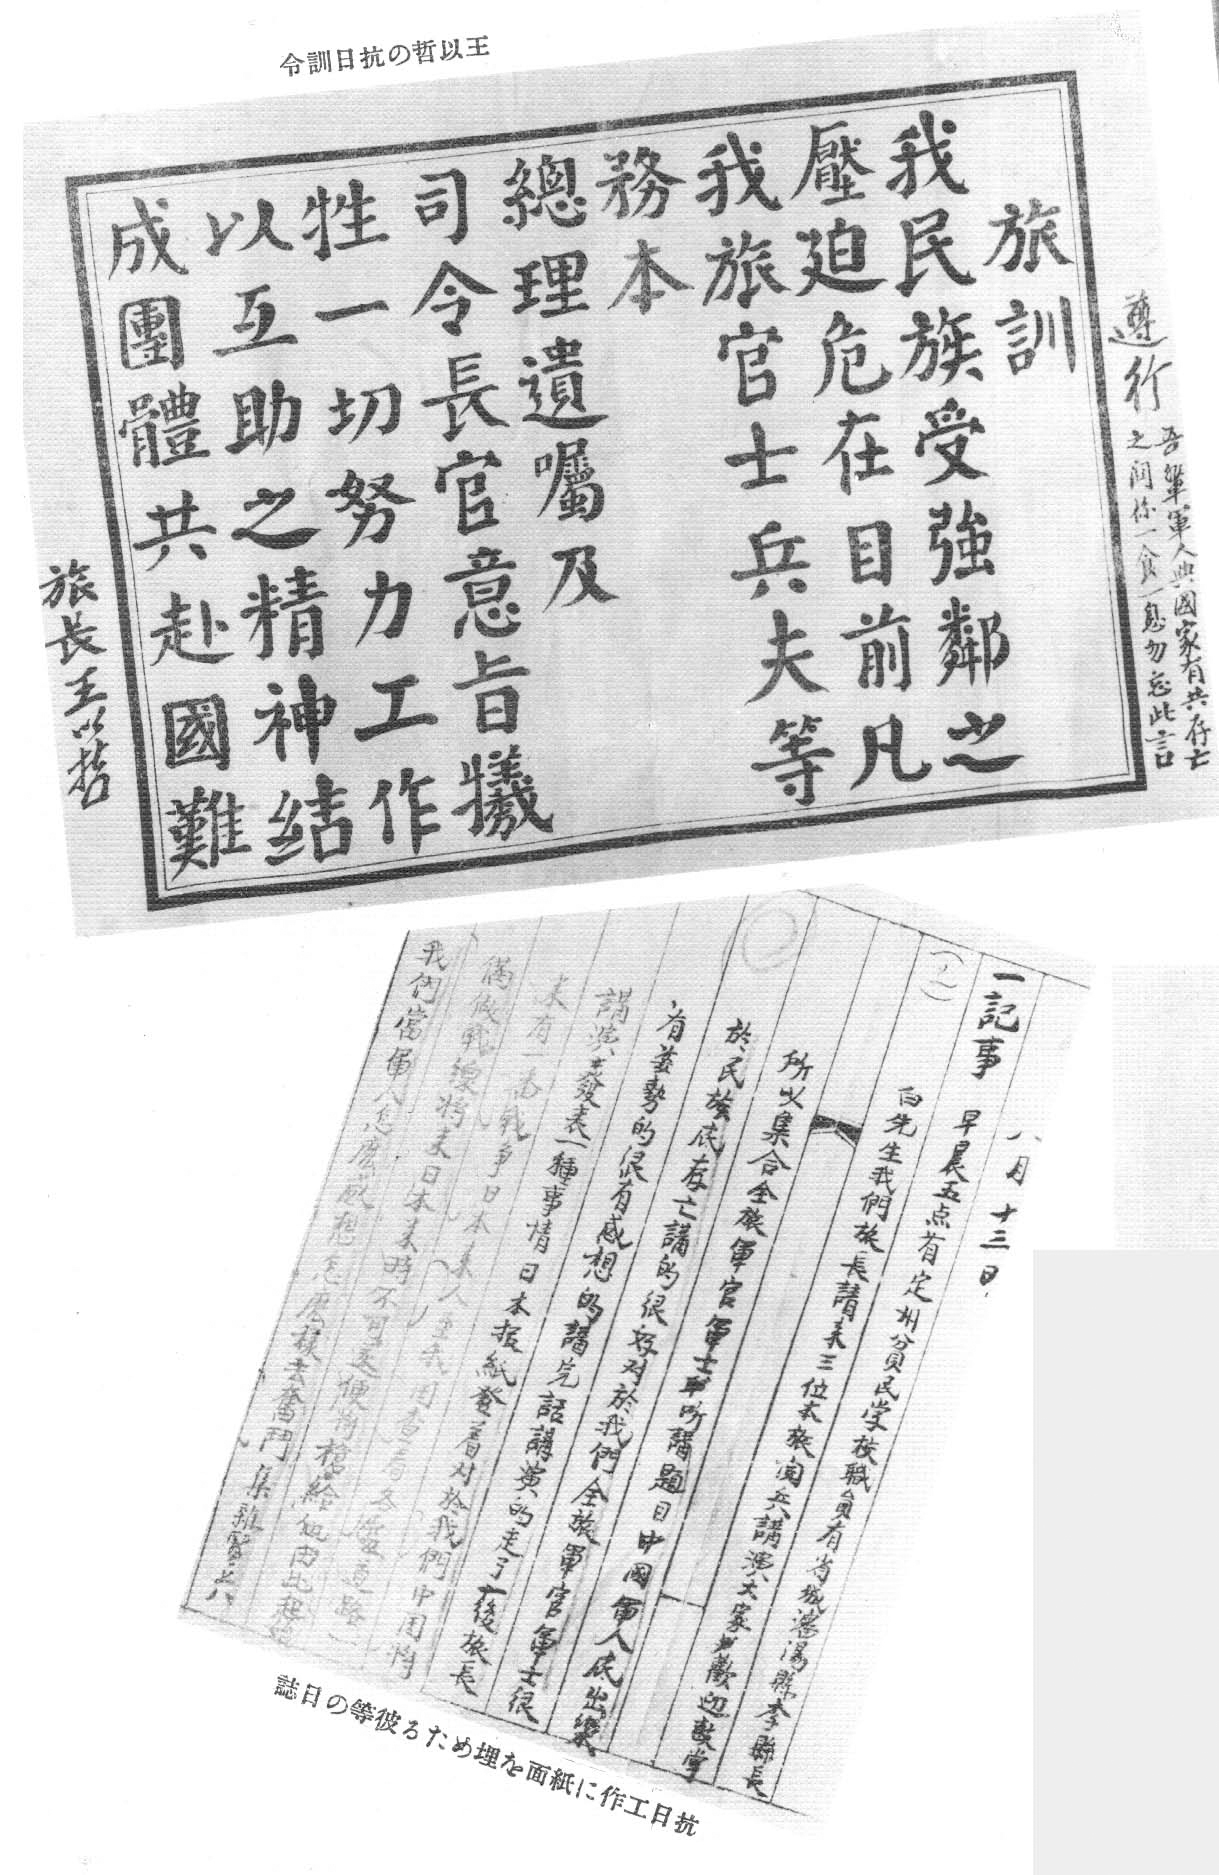 王以哲の抗日訓令
旅訓
我民族受強鄰之
壓迫危在目前凡
我旅官士兵夫等
務本
總理遺囑及
司令長官意旨犧
牲一切努力工作
以互助之精神結
成團體共赴國難
遵行
吾輩軍人與國家有共存亡
之關係一食一息勿忘此言
旅長王以哲
八月十三日
一記事 早晨五点有定州貧民学校職員有省城瀋陽縣李縣長
(一)
白先生我們旅長請来三位本旅閲兵講演大家歡迎鼓掌
所以集合全旅軍官軍士 講題目中國軍人底出樂
於民族底存亡講的很好对於我們全旅軍官軍士很
有姿勢的很有感想的講完話講演的走了後旅長
講演發表一種事情日本报紙登着对於我們中国
来有一 戰争日本来人
将来日本来時不可
我們當軍人怎麽感想怎麽樣去奮鬥
抗日工作に紙面を埋めたる彼等の日誌